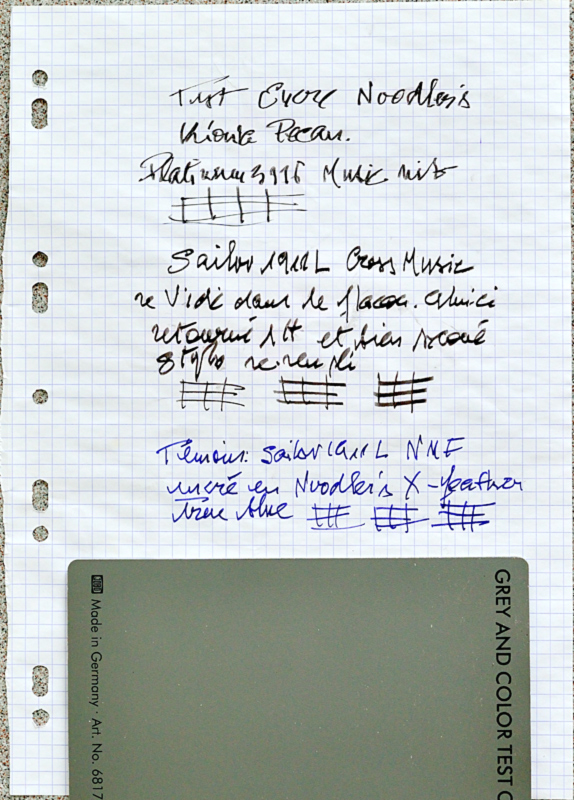 Test Encre Noodler's
Kiowa Pecan.
Platinum 3776 Music nib
Sailor 1911L Cross Music
re Vidé dans le flacon. Celui ci
retourné 1H et bien secoué
Stylo re rempli
Témoin: Sailor 1911L NMF
encré en Noodler's X-feather
True blue
GREY AND COLOR TEST C
Made in Germany · Art. No. 6817